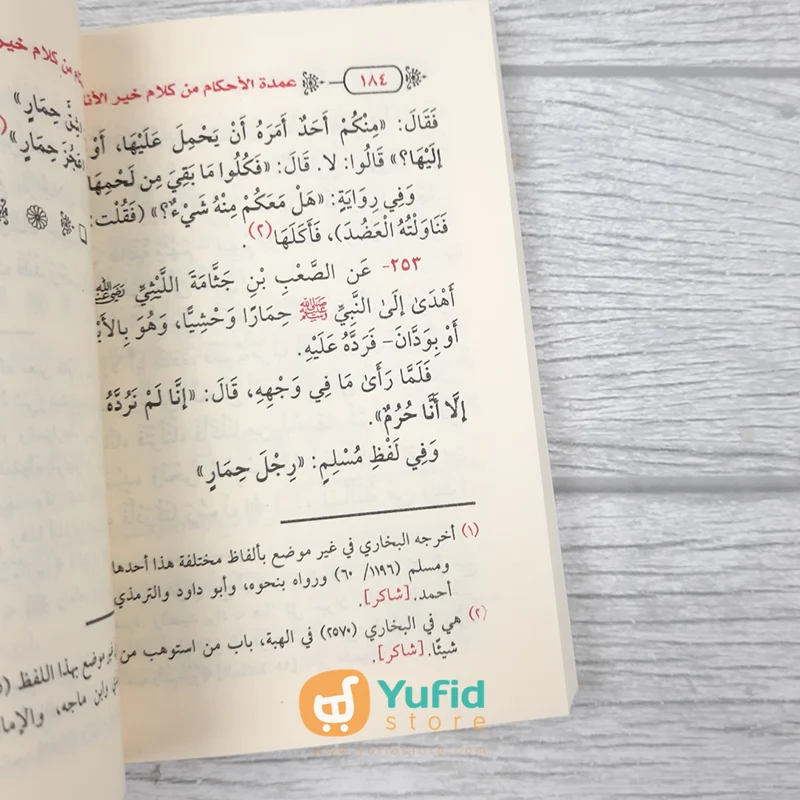 ١٨٤
عمدة الأحكام من كلام خير
فَقَالَ: «مِنْكُمْ أَحَدٌ أَمَرَهُ أَنْ يَحْمِلَ عَلَيْهَا، أَوْ
إِلَيْهَا؟» قَالُوا: لا. قَالَ: «فَكُلُوا مَا بَقِيَ مِن لَحْمِهَا
وَفِي رِوَايَةٍ: «هَلْ مَعَكُمْ مِنْهُ شَيْءٌ؟» (فَقُلْت:
فَنَاوَلْتُهُ الْعَضُدَ)، فَأَكَلَهَا(٢).
٢٥٣- عَن الصَّعْبِ بْنِ جَثَّامَةَ اللَّيْثِيِّ رضي الله عنه
أَهْدَىٰ إِلَىٰ النَّبِيِّ ﷺ حِمَارًا وَحْشِيًّا، وَهُوَ
أَوْ بِوَدَّانَ- فَرَدَّهُ عَلَيْهِ.
فَلَمَّا رَأَىٰ مَا فِي وَجْهِهِ، قَالَ: «إِنَّا لَمْ نَرُدَّهُ
إِلَّا أَنَّا حُرُمٌ».
وَفِي لَفْظِ مُسْلِمٍ: «رِجْلَ حِمَارٍ»
(١) أخرجه البخاري في غير موضع بألفاظ مختلفة هذا أحدها
ومسلم (١١٩٦/ ٦٠) ورواه بنحوه، وأبو داود والترمذي
أحمد. [شاكر].
(٢) هي في البخاري (٢٥٧٠) في الهبة، باب من استوهب من
شيئًا. [شاكر].
حِمَارٍ»
حِمَارٍ»
موضع بهذا اللفظ
وابن ماجه،
Yufid
store